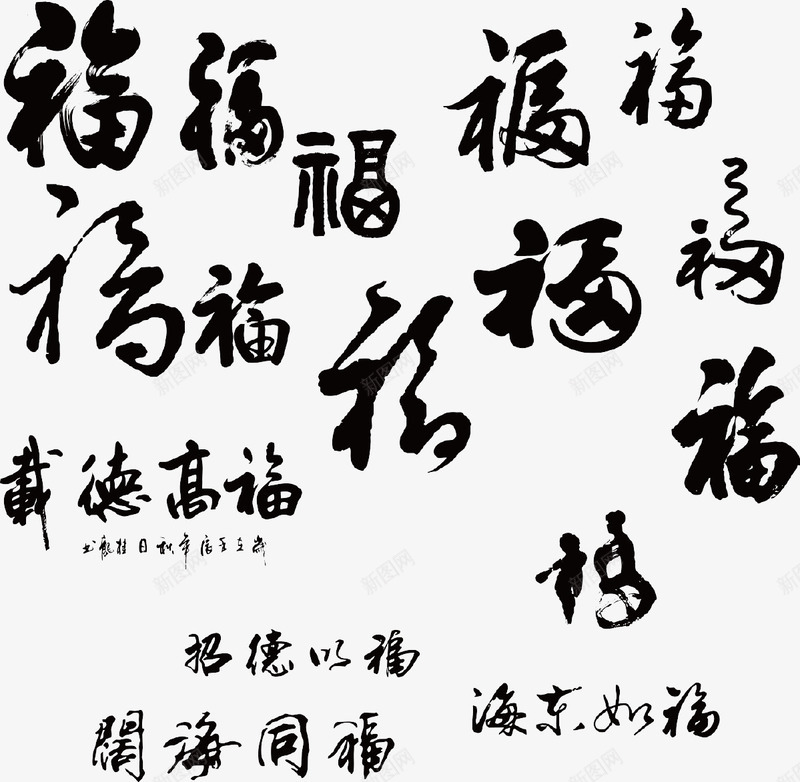 福
福
福
福
福
福
福
福
福
福
福
福
福高德載
年秋日
福以德招
福如東海
福同海闊
新图网